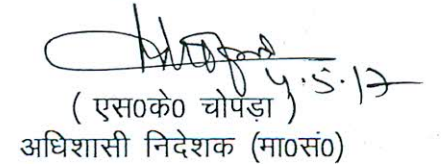 4.5.17
( एस0के0 चोपड़ा )
अधिशासी निदेशक (मा0सं0)